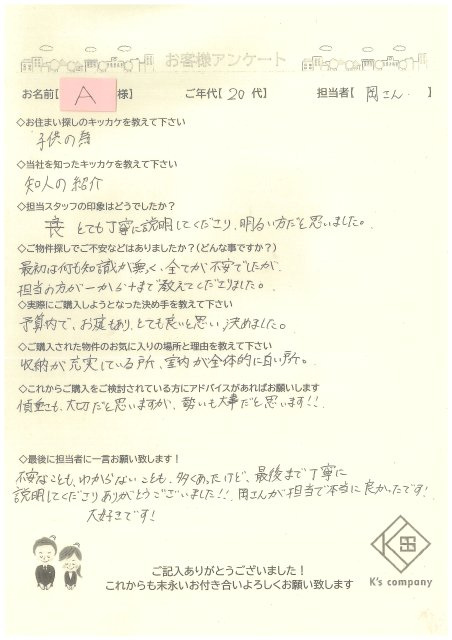 お客様アンケート
お名前【 A 様】 ご年代【 20 代】 担当者【 岡さん 】
◇お住まい探しのキッカケを教えて下さい
子供の為
◇当社を知ったキッカケを教えて下さい
知人の紹介
◇担当スタッフの印象はどうでしたか？
とても丁寧に説明してくださり、明るい方だと思いました。
◇ご物件探しでご不安などはありましたか？(どんな事ですか？)
最初は何も知識が無く、全てが不安でしたが、
担当の方が一から十まで教えてくださりました。
◇実際にご購入しようとなった決め手を教えて下さい
予算内で、お庭もあり、とても良いと思い決めました。
◇ご購入された物件のお気に入りの場所と理由を教えて下さい
収納が充実している所、室内が全体的に白い所。
◇これからご購入をご検討されている方にアドバイスがあればお願いします
慎重さも、大切だと思いますが、勢いも大事だと思います!!
◇最後に担当者に一言お願い致します！
不安なことも、わからないことも、多くあったけど、最後まで丁寧に
説明してくださりありがとうございました!! 岡さんが担当で本当に良かったです!
大好きです!
ご記入ありがとうございました！
これからも末永いお付き合いよろしくお願い致します
K's company